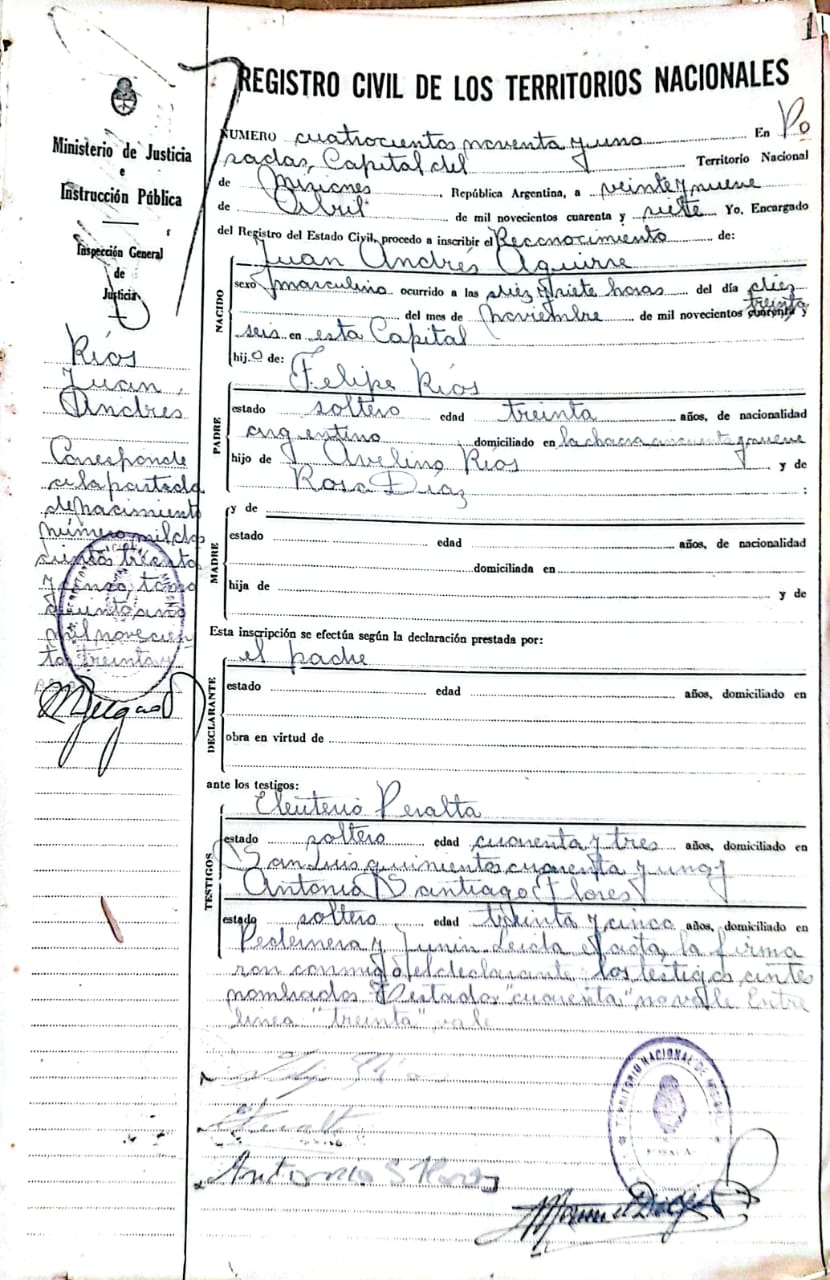 1
REGISTRO CIVIL DE LOS TERRITORIOS NACIONALES
Ministerio de Justicia
e
Instrucción Pública
Inspección General
de
Justicia
Ríos
Juan
Andres
Corresponde
a la partida
de nacimiento
número mil dos
cientos treinta
y cinco, tomo
año
mil novecien
tos treinta y
NUMERO cuatrocientos noventa y uno En Po
sadas, Capital del Territorio Nacional
de Misiones, República Argentina, a veinte y nueve
de Abril de mil novecientos cuarenta y siete Yo, Encargado
del Registro del Estado Civil, procedo a inscribir el Reconocimiento de:
NACIDO
Juan Andrés Aguirre
sexo masculino ocurrido a las diez y siete horas del día diez
treinta
del mes de noviembre de mil novecientos cuarenta y
seis en esta Capital
hijo de:
PADRE
Felipe Ríos
estado soltero edad treinta años, de nacionalidad
argentino domiciliado en la chacra cincuenta y nueve
hijo de Avelino Ríos y de
Rosa Diaz :
MADRE
y de
estado edad años, de nacionalidad
domiciliada en
hija de y de
Esta inscripción se efectúa según la declaración prestada por:
DECLARANTE
el padre
estado edad años, domiciliado en
obra en virtud de
ante los testigos:
TESTIGOS
Eleuterio Peralta
estado soltero edad cuarenta y tres años, domiciliado en
San Luis quinientos cuarenta y uno y
Antonio Santiago Flores
estado soltero edad treinta y cinco años, domiciliado en
Pedernera y Junin Leida el acta, la firma
ron conmigo el declarante los testigos ante
nombrados Testados "cuarenta" no vale Entre
linea "treinta" vale
Antonio S Flores
TERRITORIO NACIONAL DE MISIONES